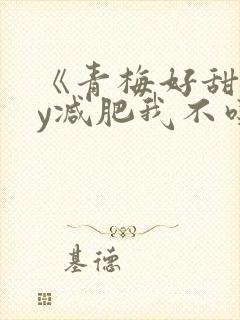 《青梅好甜
y减肥我不
基德